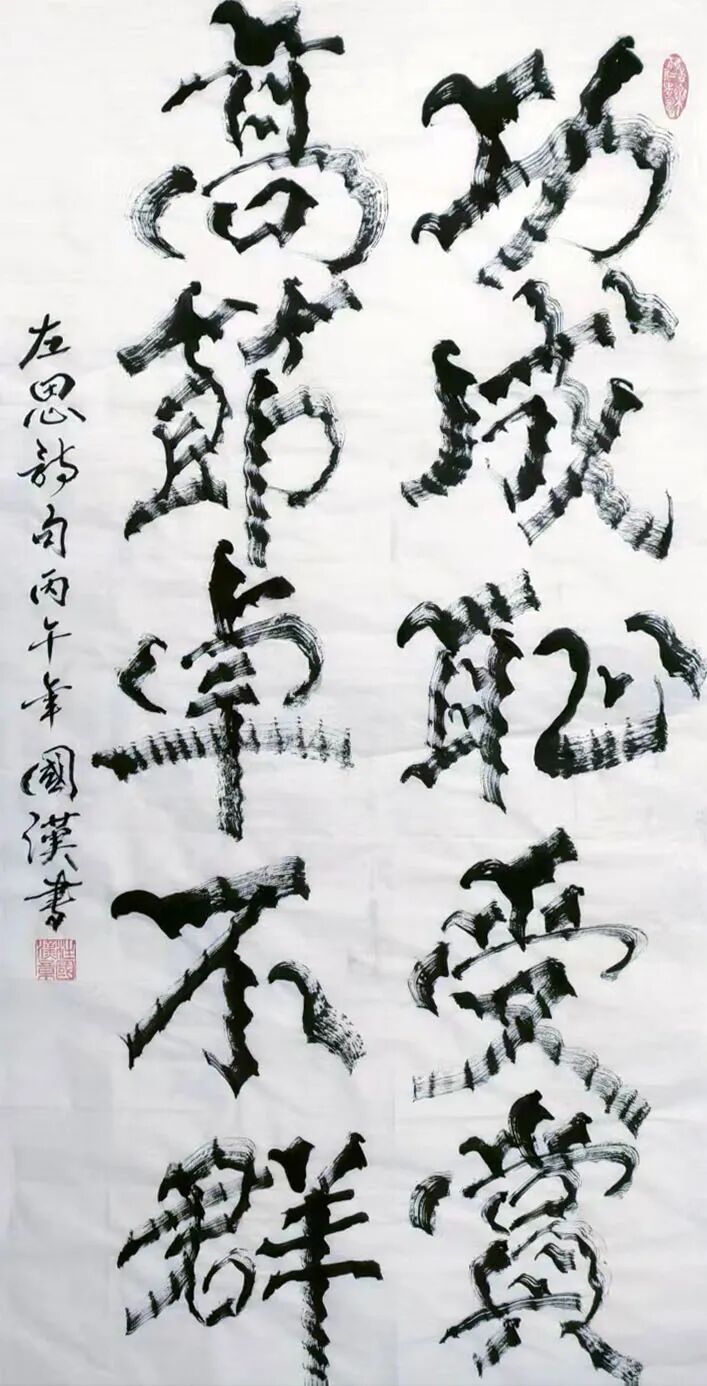 功成恥受賞
高節卓不群
左思詩句丙午年國漢書